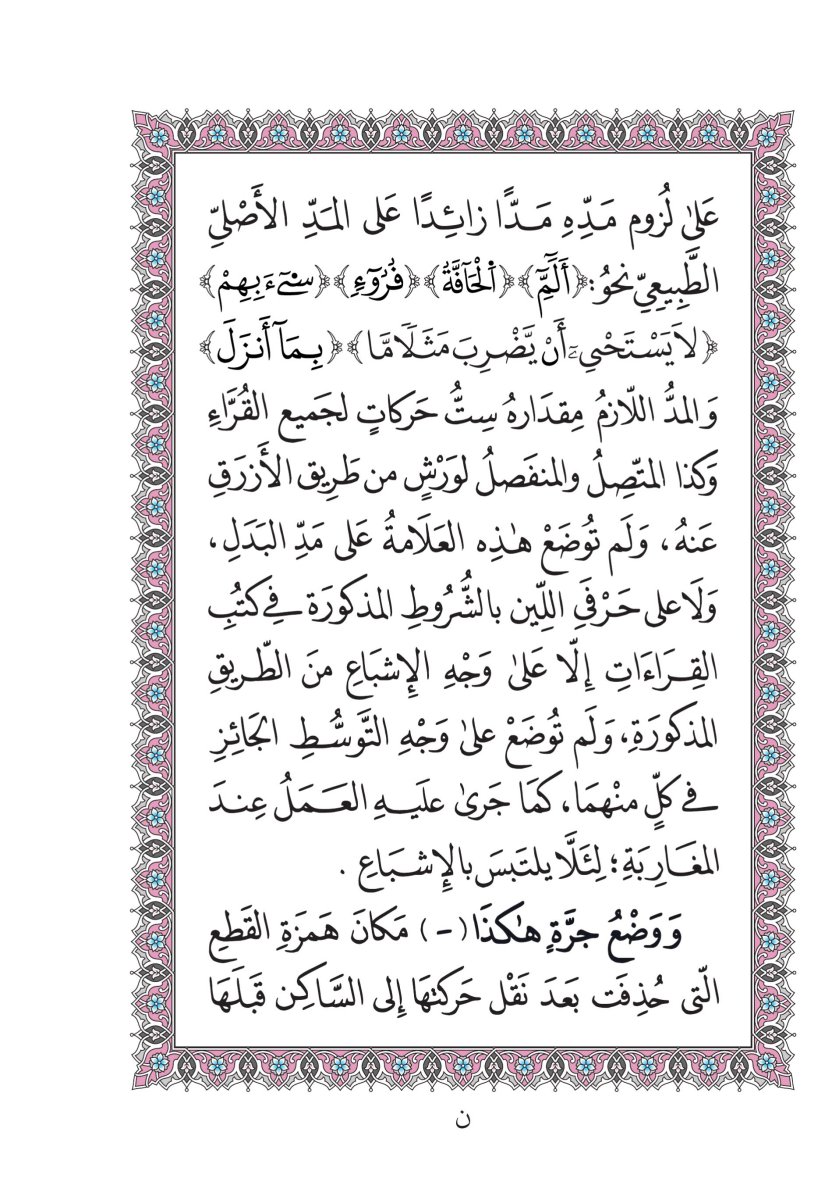 عَلىٰ لُزوم مَدِّهِ مَدًّا زائِدًا عَلى المَدِّ الأَصْلِيِّ
الطَّبِيعِيِّ نحوُ: ﴿أَلَٓمِّٓ﴾ ﴿اُ۬لْحَآقَّةُ﴾ ﴿قُرُوٓءٖ﴾ ﴿سِےٓءَ بِهِمْ﴾
﴿لَا يَسْتَحْيِۦٓ أَنْ يَّضْرِبَ مَثَلاٗ مَّا﴾ ﴿بِمَآ أَنزَلَ﴾
وَالمدُّ اللّازمُ مِقدَارهُ سِتُّ حَركاتٍ لجَميع القُرَّاءِ
وَكذا المتّصِلُ والمنفَصلُ لوَرْشٍ من طَرِيق الأَزرَقِ
عَنهُ، وَلَم تُوضَعْ هٰذِه العَلَامةُ عَلى مَدِّ البَدَلِ،
وَلَا على حَرْفَيِ اللِّين بالشُّرُوطِ المذكورَة في كتُبِ
القِرَاءَاتِ إِلّا عَلىٰ وَجْهِ الإِشبَاعِ منَ الطَّريقِ
المذكورَةِ، وَلَم تُوضَعْ علىٰ وَجْهِ التَّوَسُّطِ الجَائِزِ
في كلٍّ منْهمَا، كمَا جَرىٰ علَيهِ العَمَلُ عِندَ
المغَاربَةِ؛ لِئَلَّا يلتَبسَ بالإِشبَاعِ .
وَوَضْعُ جرَّةٍ هٰكَذَا (-) مَكانَ هَمزَةِ القَطعِ
الّتى حُذِفَت بَعدَ نَقْل حَركتهَا إِلى السَّاكِن قَبلَهَا
ن